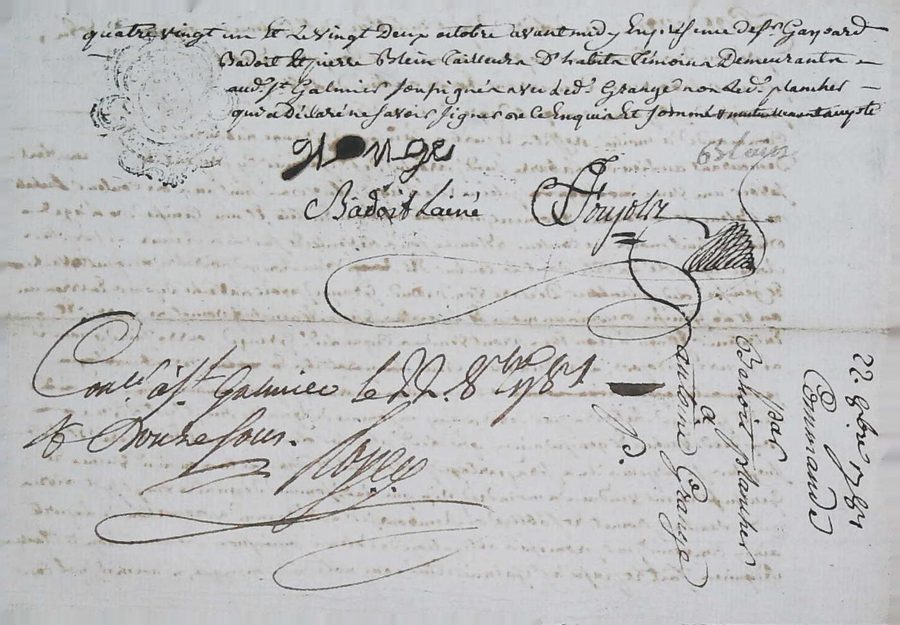 quatre vingt un Et Le vingt Deux octobre avant midy En presence de Sr. Gaspard
Badoit Et pierre Blein Tailleurs D'habits Temoins Demeurants
aud. St. Galmier soussignés avec led. Grange non Led. plancher
qui a déclaré ne savoir signer de ce Enquis Et sommé
Grange
Blein
Badoit Lainé
Conlé. à St. Galmier le 22. 8bre 1781
R Douze sous.
22. 8bre 1781
Commande
par
Benoit plancher
a
antoine Grange